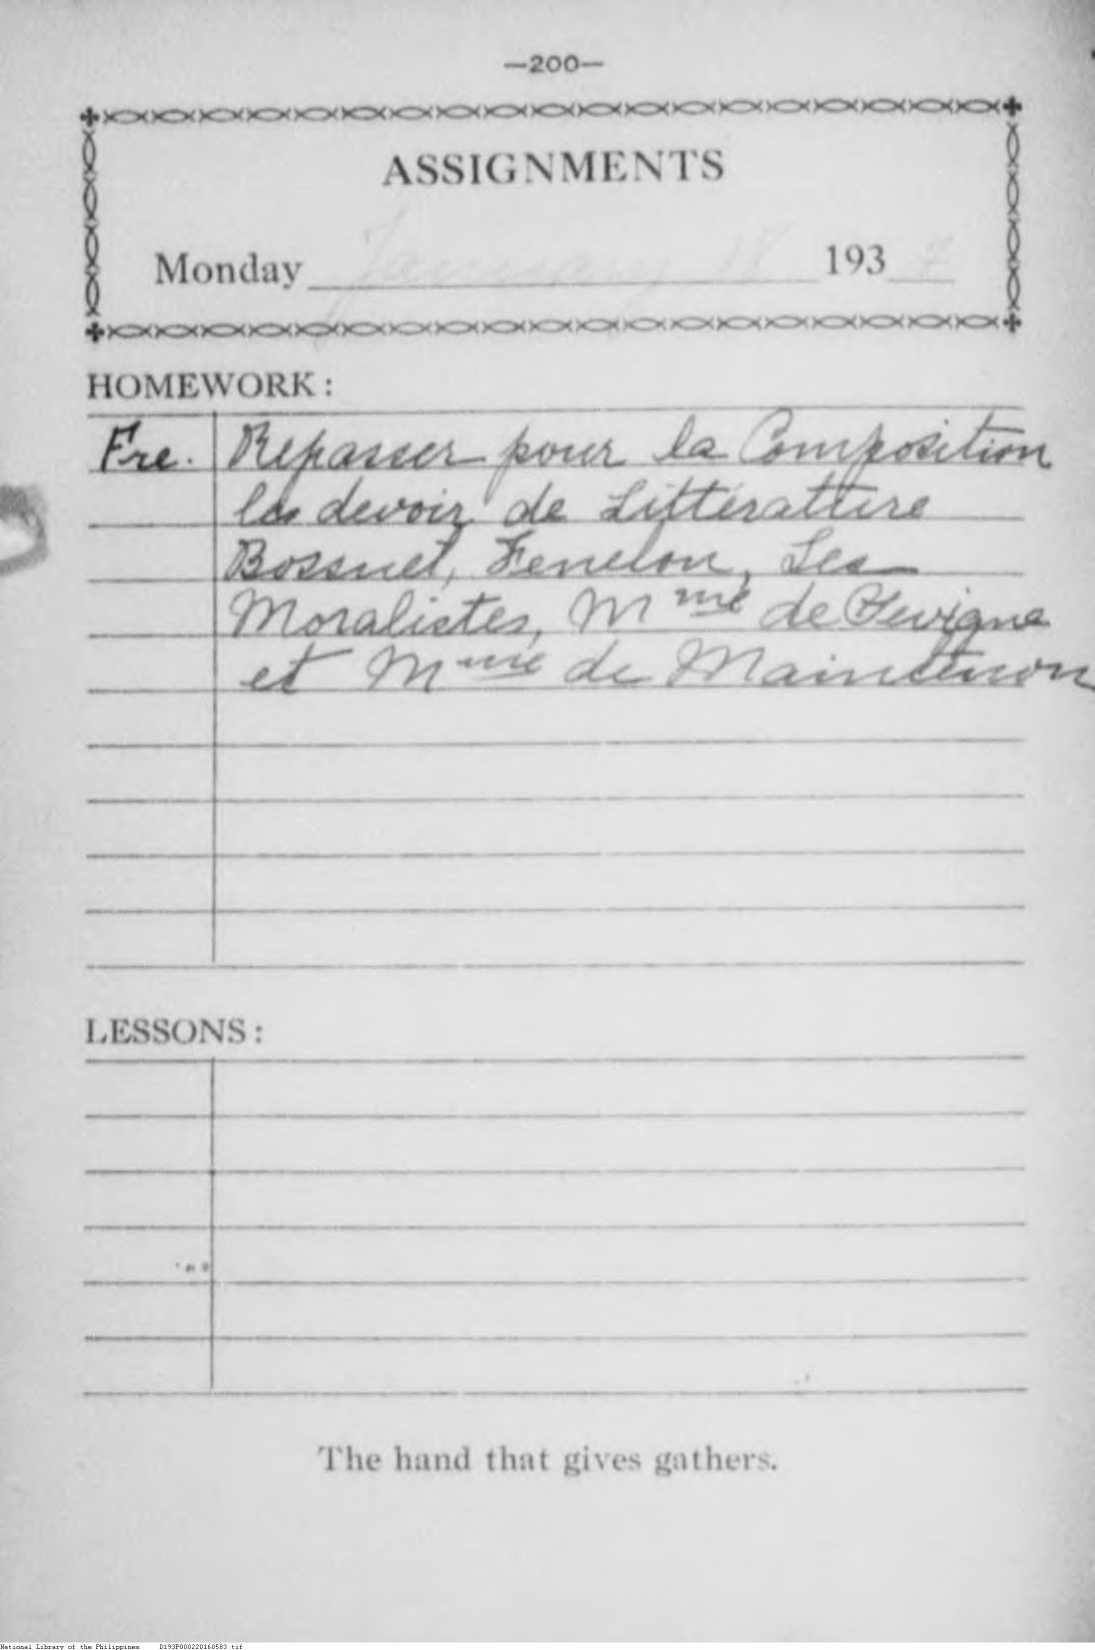 —200—
ASSIGNMENTS
Monday January 18 1937
HOMEWORK:
Fre. Repasser pour la Composition
les devoir de Littérature
Bossuet, Fenelon, Les
Moralistes, Mme de Sevigne
et Mme de Maintenon
LESSONS:
The hand that gives gathers.
National Library of the Philippines D193P000220160583.tif